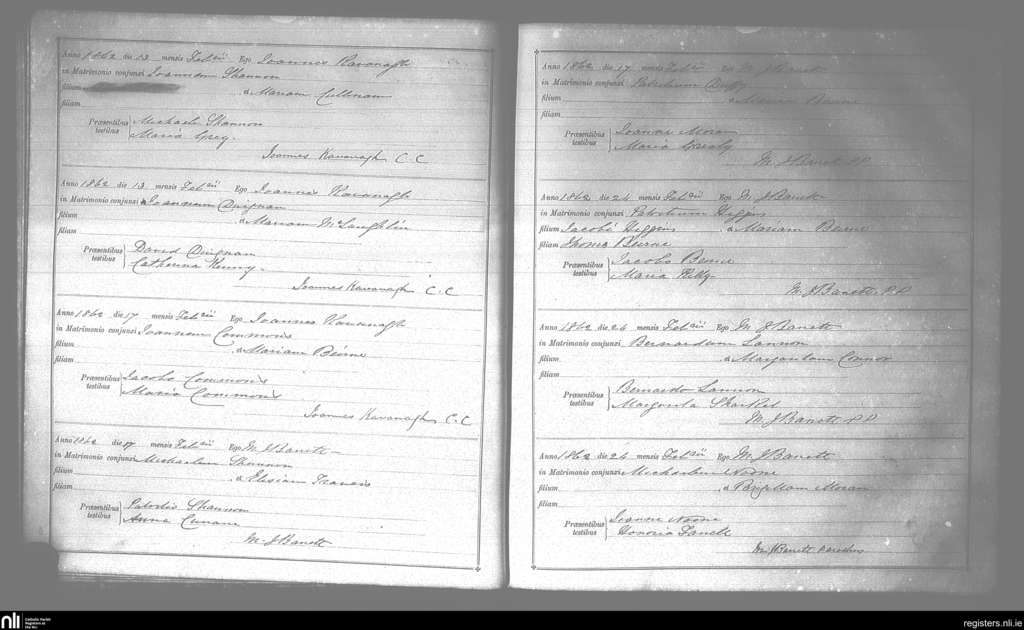 Anno 1862 die 13 mensis Febrii Ego Joannes Kavanagh
in Matrimonio conjunxi Joannem Shannon
filium
& Mariam Cullinam
filiam
Præsentibus testibus
Michaele Shannon
Maria Grey.
Joannes Kavanagh C.C
Anno 1862 die 13 mensis Febrii Ego Joannes Kavanagh
in Matrimonio conjunxi Joannem Duignan
filium
& Mariam McLaughlin
filiam
Præsentibus testibus
David Duignan
Catherina Henry.
Joannes Kavanagh C.C
Anno 1862 die 17 mensis Febrii Ego Joannes Kavanagh
in Matrimonio conjunxi Joannem Commons
filium
& Mariam Beirne
filiam
Præsentibus testibus
Jacobo Commons
Maria Commons
Joannes Kavanagh C.C
Anno 1862 die 17 mensis Febrii Ego M. J Barrett
in Matrimonio conjunxi Michaelem Shannon
filium
& Elisiam Francis
filiam
Præsentibus testibus
Patricio Shannon
Anna
M. J Barrett
Anno 1862 die 17 mensis Febrii Ego M. J Barrett
in Matrimonio conjunxi Patritium Duffy
filium
& Mariam Beirne
filiam
Præsentibus testibus
Joanne Moran
Maria Grealy
M. J Barrett P.P
Anno 1862 die 26 mensis Febrii Ego M. J Barrett
in Matrimonio conjunxi Patritium Higgins
filium Jacobi Higgins & Mariam Beirne
filiam Thoma Beirne
Præsentibus testibus
Jacobo Beirne
Maria
M. J Barrett. P.P
Anno 1862 die 26 mensis Febrii Ego M. J Barrett
in Matrimonio conjunxi Bernardum Lannon
filium
& Margaritam Connor
filiam
Præsentibus testibus
Bernardo Lannon
Margarita
M. J Barrett P.P
Anno 1862 die 26 mensis Febrii Ego M. J Barrett
in Matrimonio conjunxi Michaelem Noone
filium
& Moran
filiam
Præsentibus testibus
Joanne Noone
Honoria
M. J Barrett parochus
nli
Catholic Parish
Registers at
the NLI
registers.nli.ie